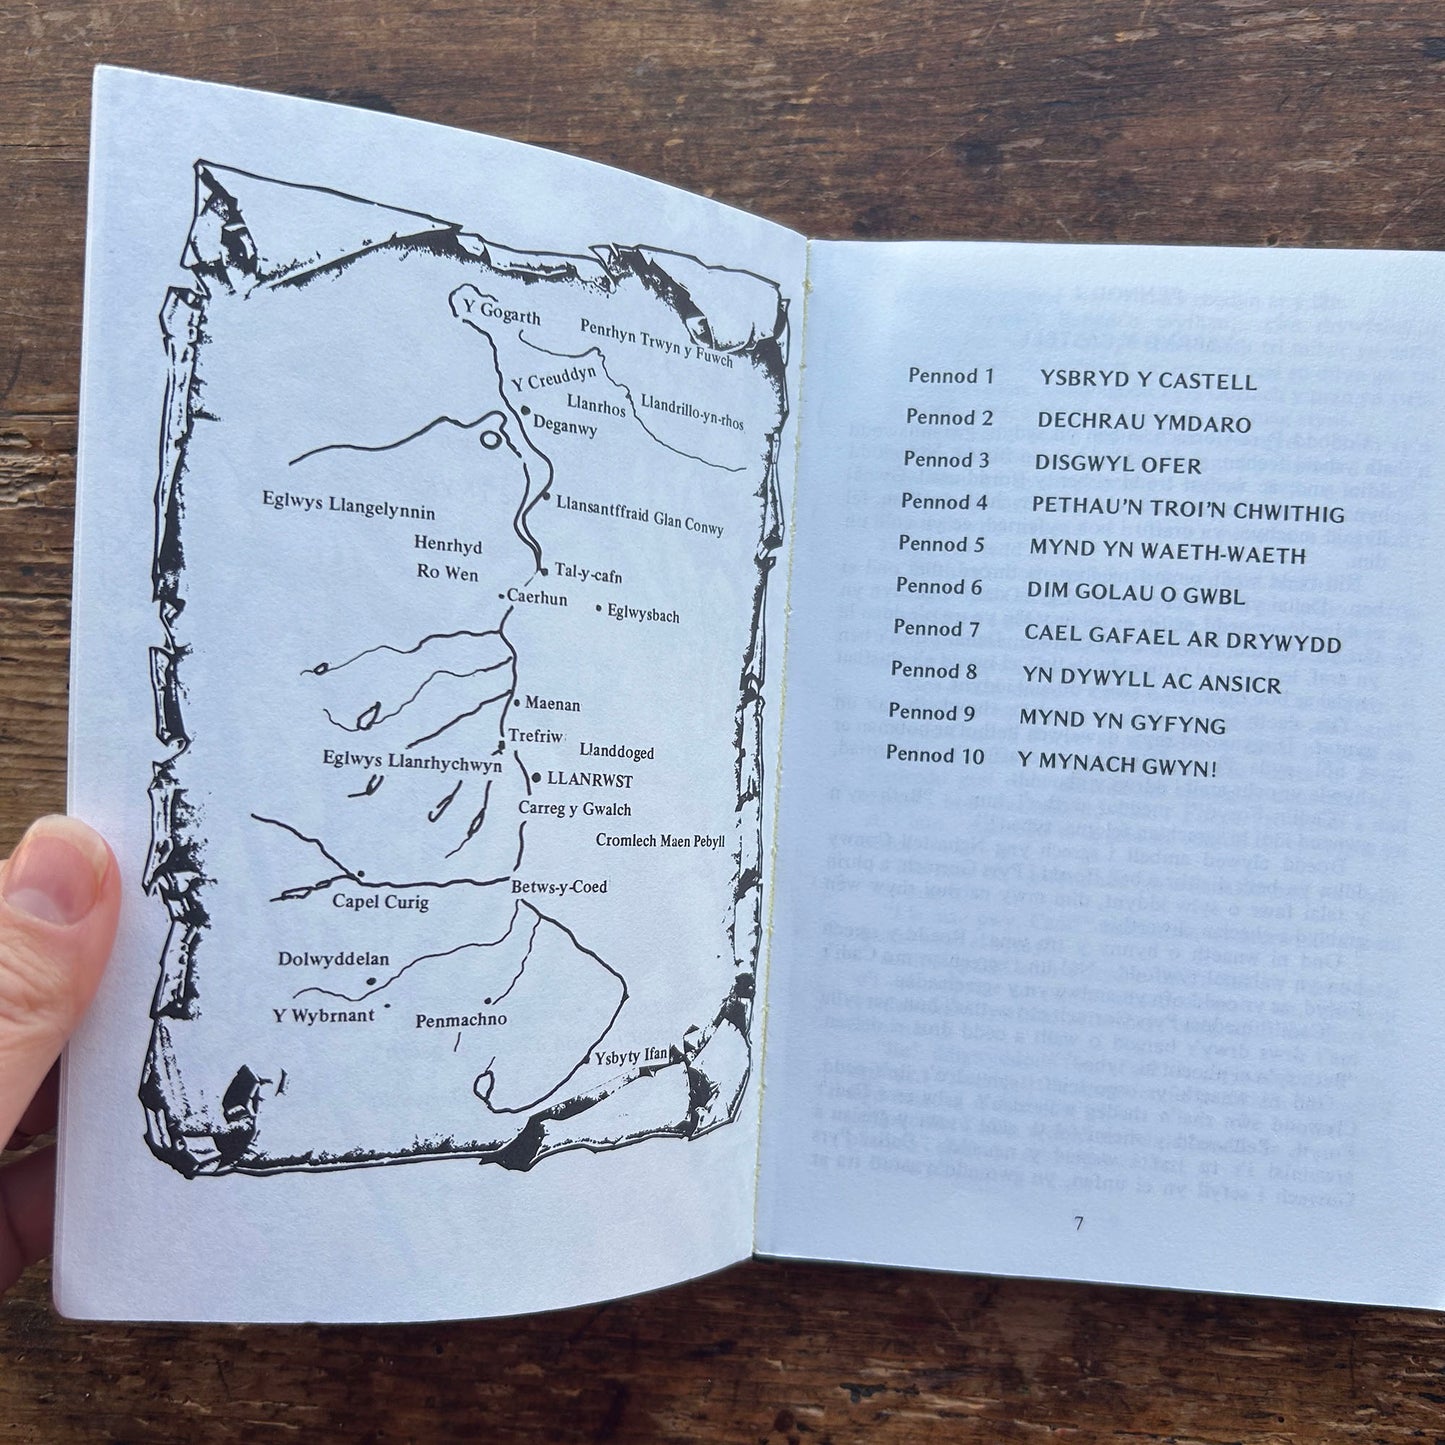 Y Gogarth
Penrhyn Trwyn y Fuwch
Y Creuddyn
Llanrhos
Llandrillo-yn-rhos
Deganwy
Eglwys Llangelynnin
Llansantffraid Glan Conwy
Henrhyd
Ro Wen
Tal-y-cafn
Caerhun
Eglwysbach
Maenan
Trefriw
Llanddoged
Eglwys Llanrhychwyn
LLANRWST
Carreg y Gwalch
Cromlech Maen Pebyll
Betws-y-Coed
Capel Curig
Dolwyddelan
Y Wybrnant
Penmachno
Ysbyty Ifan
Pennod 1 YSBRYD Y CASTELL
Pennod 2 DECHRAU YMDARO
Pennod 3 DISGWYL OFER
Pennod 4 PETHAU'N TROI'N CHWITHIG
Pennod 5 MYND YN WAETH-WAETH
Pennod 6 DIM GOLAU O GWBL
Pennod 7 CAEL GAFAEL AR DRYWYDD
Pennod 8 YN DYWYLL AC ANSICR
Pennod 9 MYND YN GYFYNG
Pennod 10 Y MYNACH GWYN!
7